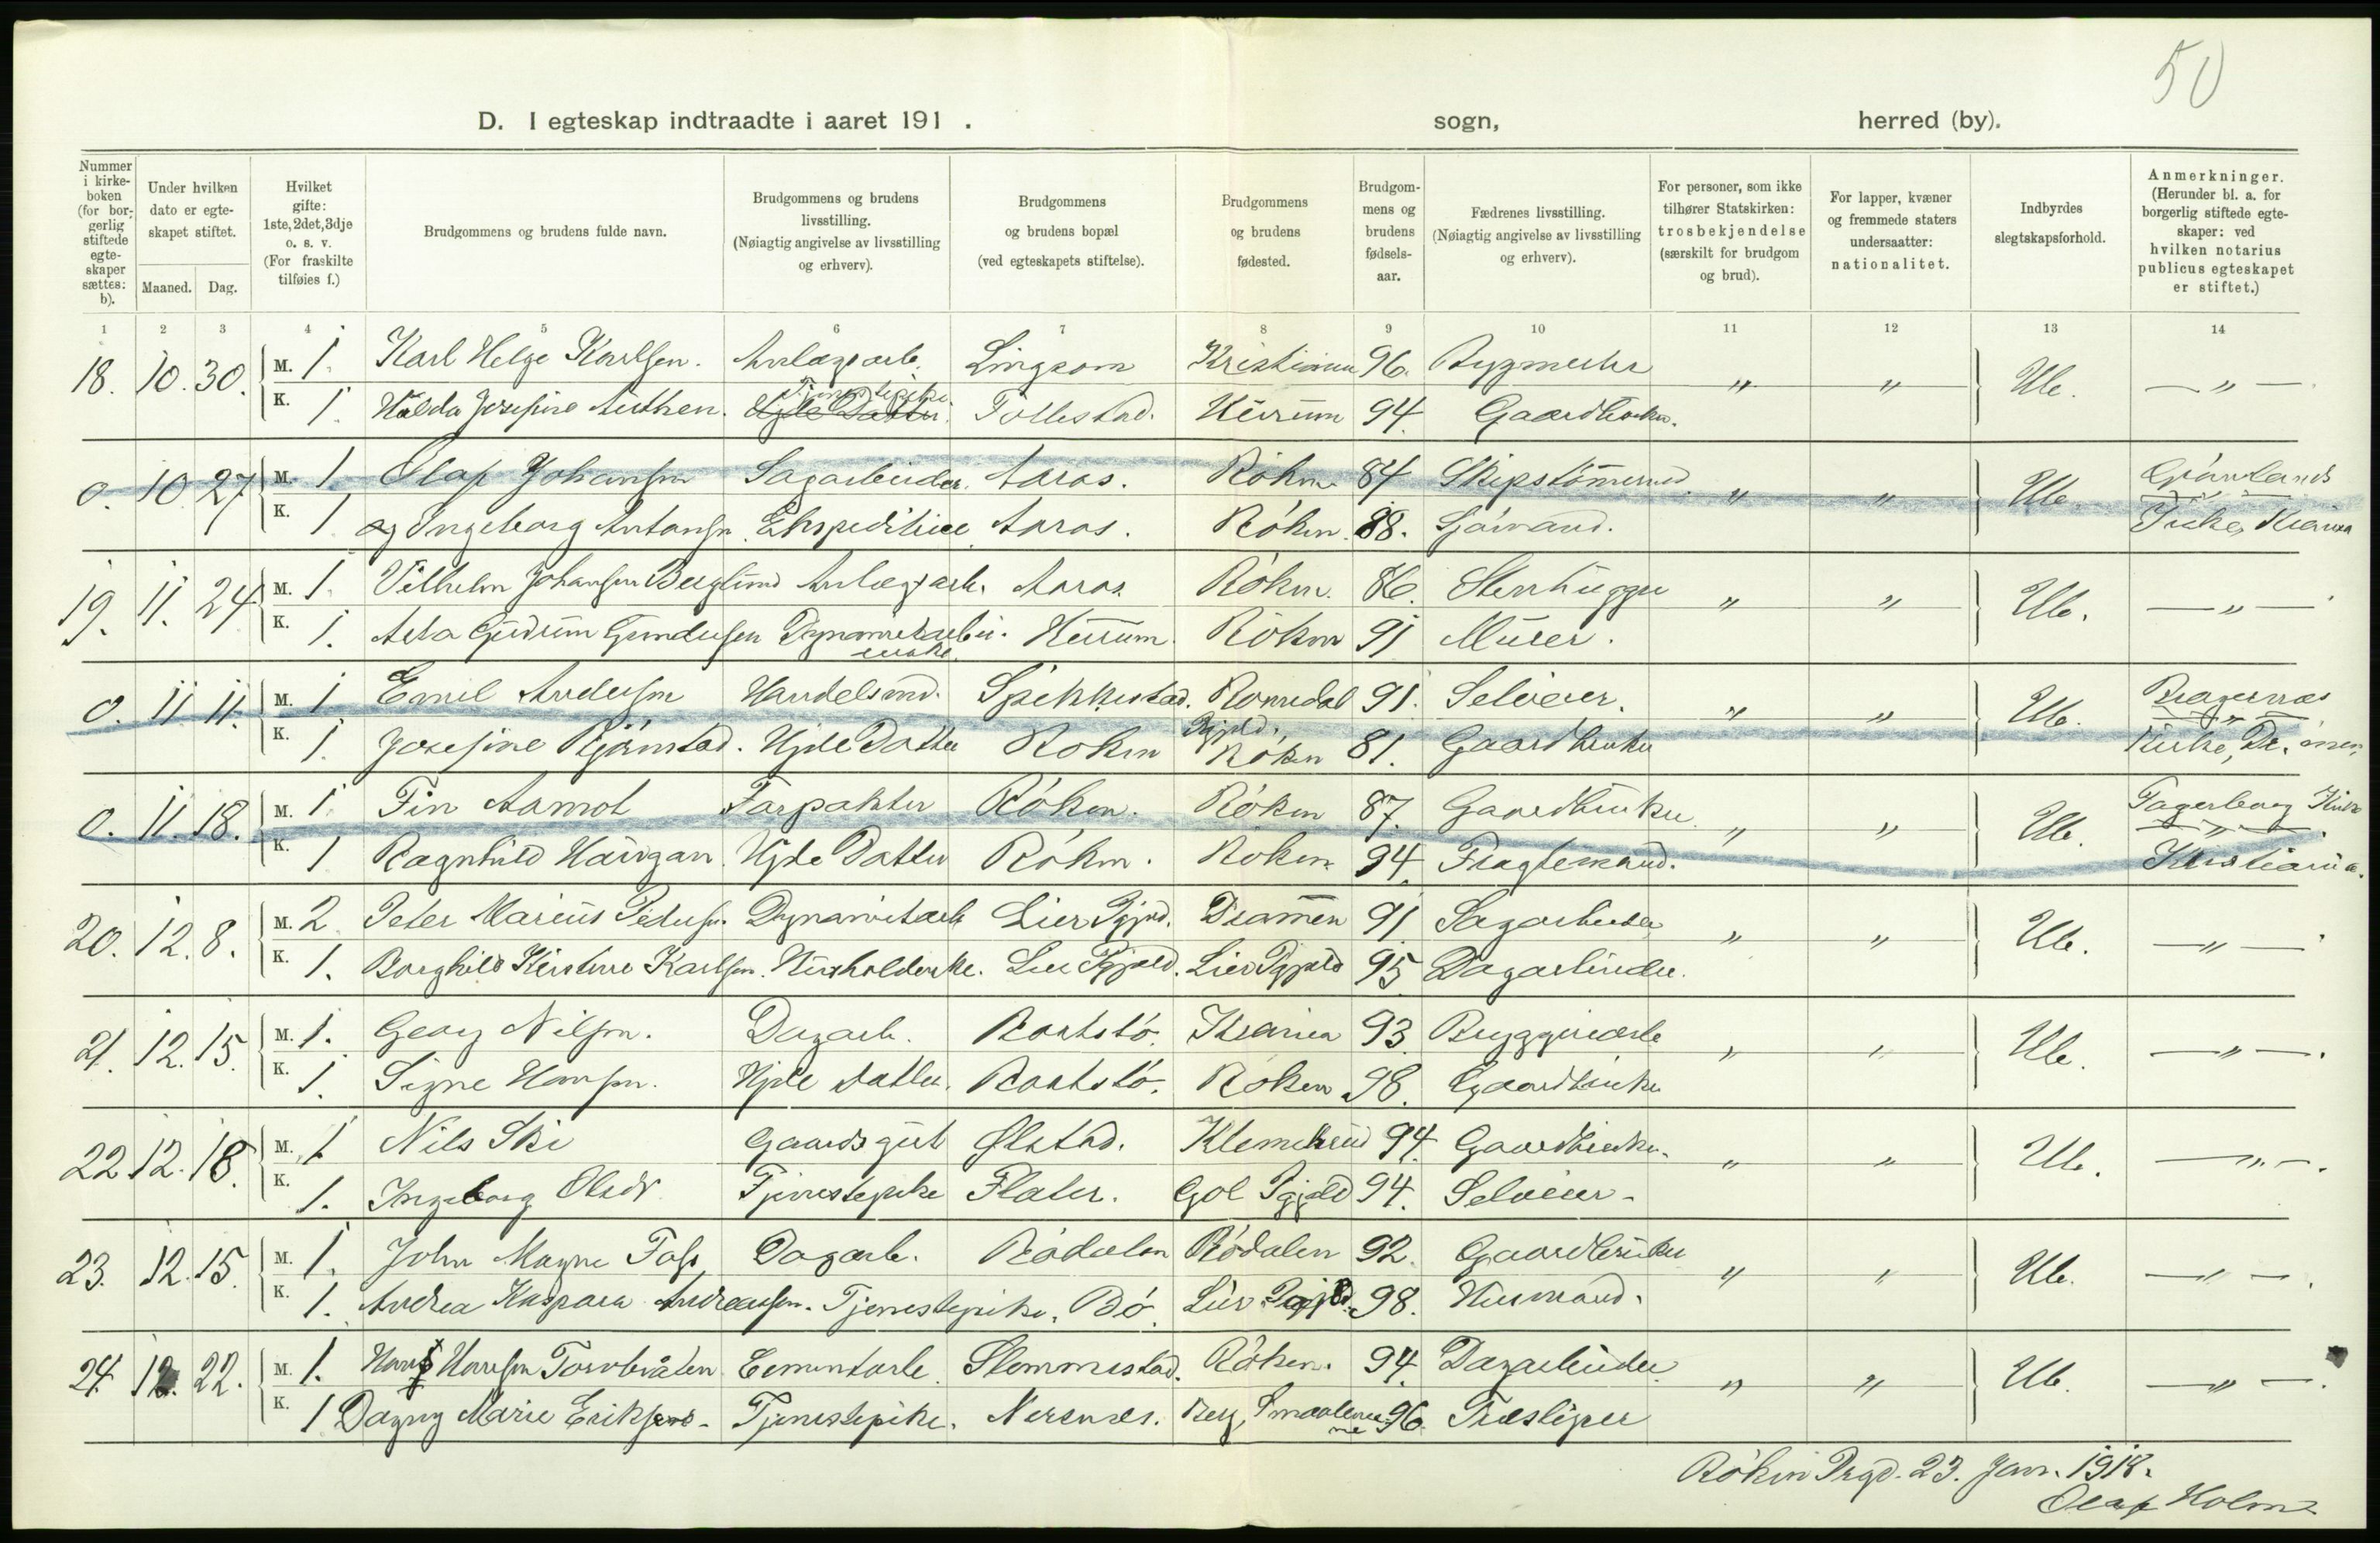 50
D. I egteskap indtraadte i aaret 191 . sogn, herred (by).
Nummer i kirkeboken (for borgerlig stiftede egteskaper sættes: b).
Under hvilken dato er egteskapet stiftet.
Maaned. Dag.
Hvilket gifte: 1ste, 2det, 3dje o. s. v. (For fraskilte tilføies f.)
Brudgommens og brudens fulde navn.
Brudgommens og brudens livsstilling. (Nøiagtig angivelse av livsstilling og erhverv).
Brudgommens og brudens bopæl (ved egteskapets stiftelse).
Brudgommens og brudens fødested.
Brudgommens og brudens fødselsaar.
Fædrenes livsstilling. (Nøiagtig angivelse av livsstilling og erhverv).
For personer, som ikke tilhører Statskirken: trosbekjendelse (særskilt for brudgom og brud).
For lapper, kvæner og fremmede staters undersaatter: nationalitet.
Indbyrdes slegtskapsforhold.
Anmerkninger. (Herunder bl. a. for borgerlig stiftede egteskaper: ved hvilken notarius publicus egteskapet er stiftet.)
1 2 3 4 5 6 7 8 9 10 11 12 13 14
18. 10. 30. M. 1. Karl Helge Karlsen. Anlægsarb. Lingsom Kristiania 96. Bygmester " " Ub. — " —
K. 1. Hilda Josefine Authen. Tjenestepike Tollestad. Hurum 94. Gaardbruker.
0. 10 27 M. 1 Olaf Johansen Sagarbeider. Aaros. Röken 84 Skipstömmermd. " " Ub. Grönlands
K. 1 og Ingeborg Antonsen. Ekspeditrice Aaros. Röken. 88. Sjömand. Kirke, Kiania
19. 11. 24 M. 1. Vilhelm Johansen Berglund Anlægsarb. Aaros. Röken. 86. Stenhugger " " Ub. — " —
K. 1. Asta Gudrun Gundersen Dynamitarbeiderske. Hurum. Röken 91 Murer.
0. 11 11. M. 1 Emil Andersen Handelsmd. Spikkestad. Romedal Pgjeld. 91. Selveier. " " Ub. Bragernæs
K. 1. Josefine Bjørnstad. Hjde Datter Röken Röken 81. Gaardbruker Kirke, Dr.mmen.
0. 11. 18. M. 1 Fin Aamot Forpakter Röken. Röken 87. Gaardbruker. " " Ub. Fagerborg Kirke
K. 1 Ragnhild Haugan. Hjde Datter Röken. Röken. 94. Fragtemand. Kristiania.
20. 12. 8. M. 2. Peter Marius Pedersen. Dynamitarb Lier Pgjld. Drammen 91 Sagarbeider " " Ub. — " —
K. 1. Borghild Kirstine Karlsen. Husholderske. Lier Pgjeld. Lier Pgjeld 95 Dagarbeider.
21. 12. 15. M. 1. Georg Nilsen. Dagarb. Baatstö. Kiania 93. Bryggeriarb " " Ub. — " —.
K. 1. Signe Hansen. Hjde Datter. Baatstö. Röken 98. Gaardbruker
22 12. 18. M. 1 Nils Ski Gaardsgut Ølstad. Klemetsrud 94. Gaardbruker. " " Ub. — " —.
K. 1. Ingeborg Olsdr. Tjenestepike Flater. Gol Pgjeld 94. Selveier.
23. 12. 15. M. 1. John Magne Foss Dagarb. Bödalen Bödalen 92. Gaardbruker " " Ub. — " —.
K. 1. Andrea Kaspara Andreassen. Tjenestepike. Bö. Lier Pgjld. 98. Husmand.
24. 12. 22. M. 1. Hans Hansen Torvbråten Cementarb. Slemmestad. Röken. 94. Dagarbeider " " Ub. — " —.
K. 1 Dagny Marie Eriksen. Tjenestepike. Nersnes. Berg, Smaalenene 96. Træsliper
Röken Prgd. 23. Jan. 1918.
Olaf Holm